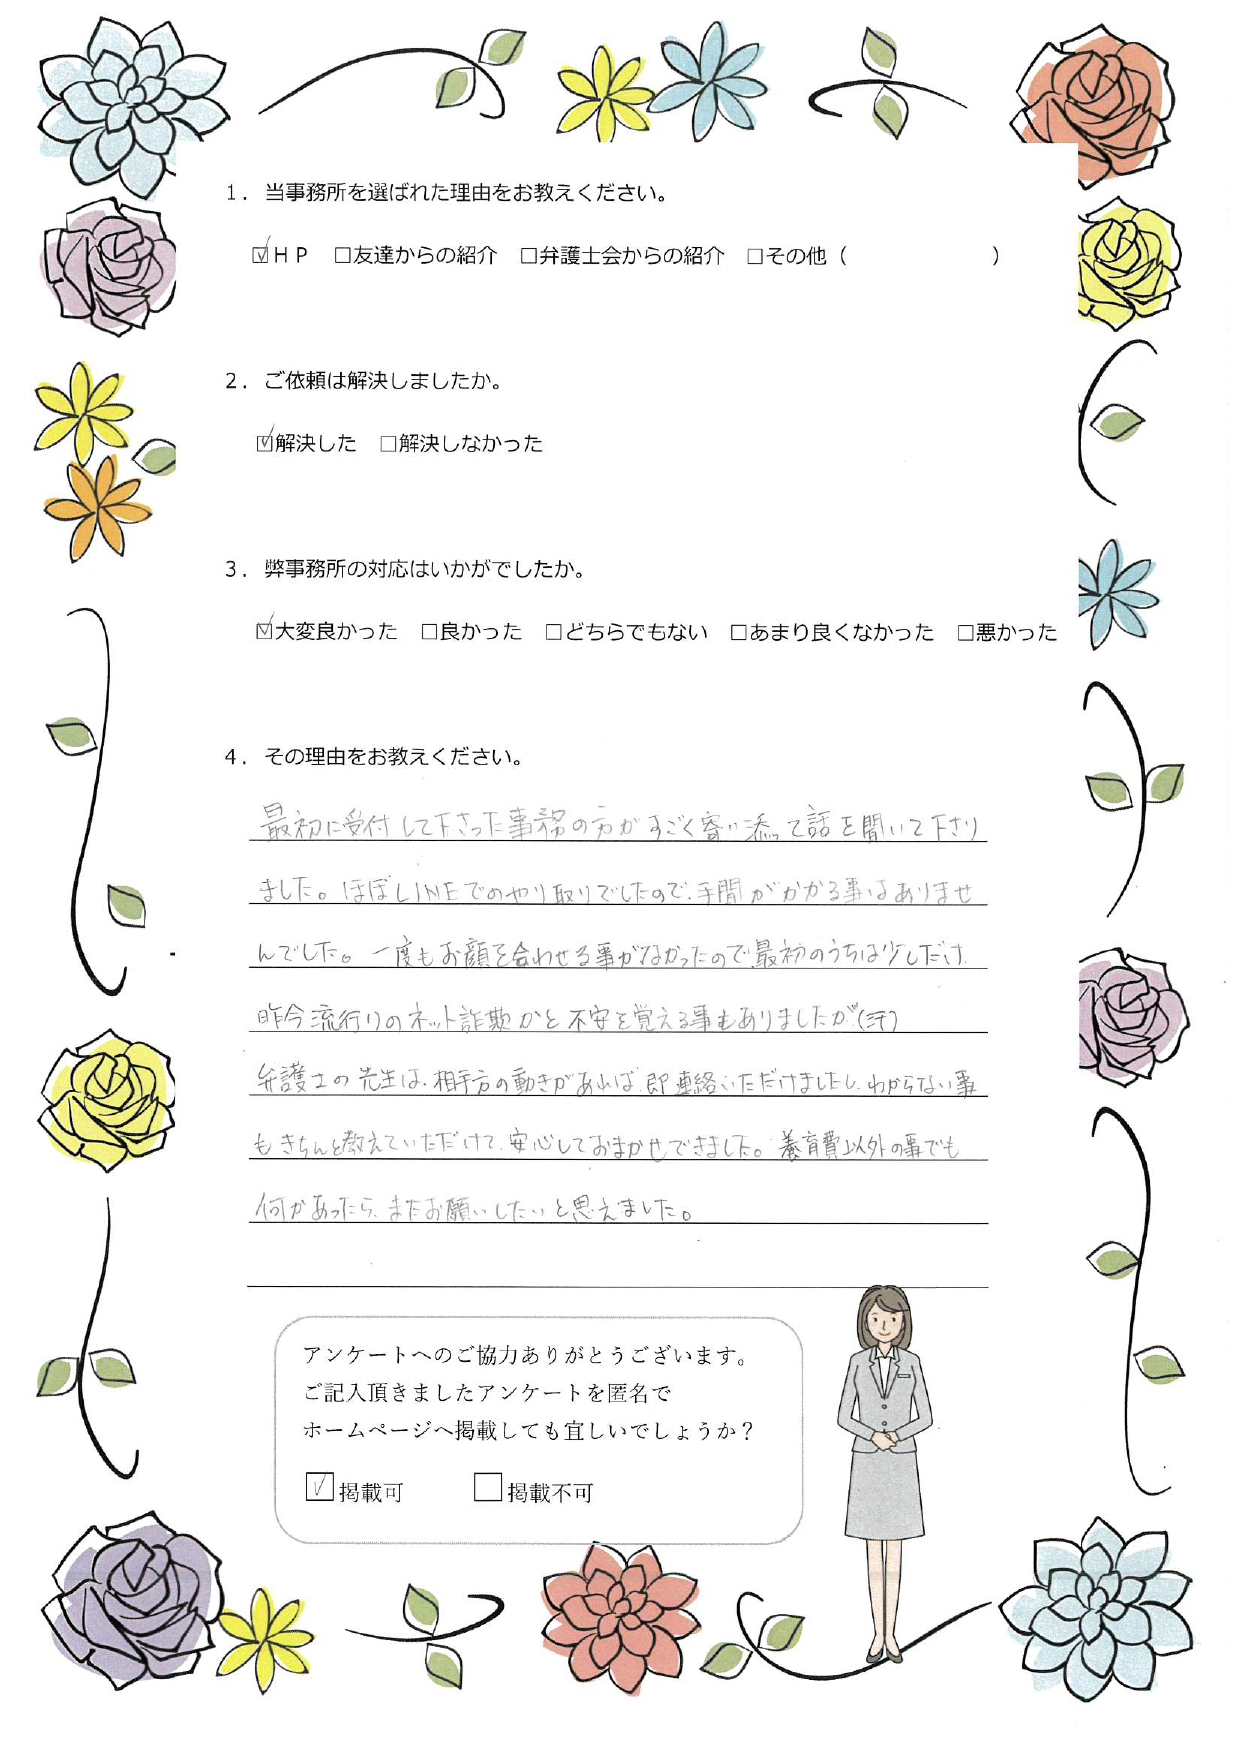 1．当事務所を選ばれた理由をお教えください。
☑ＨＰ　□友達からの紹介　□弁護士会からの紹介　□その他（　　　　　　　）
2．ご依頼は解決しましたか。
☑解決した　□解決しなかった
3．弊事務所の対応はいかがでしたか。
☑大変良かった　□良かった　□どちらでもない　□あまり良くなかった　□悪かった
4．その理由をお教えください。
最初に受付して下さった事務の方がすごく寄り添って話を聞いて下さり
ました。ほぼLINEでのやり取りでしたので、手間がかかる事はありませ
んでした。一度もお顔を合わせる事がなかったので最初のうちは少しだけ
昨今流行りのネット詐欺かと不安を覚える事もありましたが(汗)
弁護士の先生は、相手方の動きがあれば、即連絡いただけましたし、わからない事
もきちんと教えていただけて、安心しておまかせできました。養育費以外の事でも
何かあったら、またお願いしたいと思えました。
アンケートへのご協力ありがとうございます。
ご記入頂きましたアンケートを匿名で
ホームページへ掲載しても宜しいでしょうか？
☑掲載可　□掲載不可